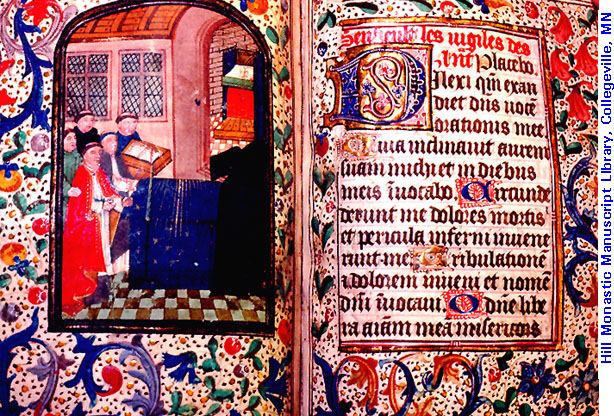 Sensuit les vigiles des
Ant Placebo
Dilexi qm̄ exau
diet dn̄s uocē
orationis mee
Quia inclinauit aurem
suam michi et in diebus
meis īuocabo Circunde
derunt me dolores mortis
et pericula inferni inuene
runt me Tribulationē
⁊ dolorem inueni et nomē
dn̄i īuocaui O dn̄e libe
ra aīam meā misericors
Hill Monastic Manuscript Library, Collegeville, MN